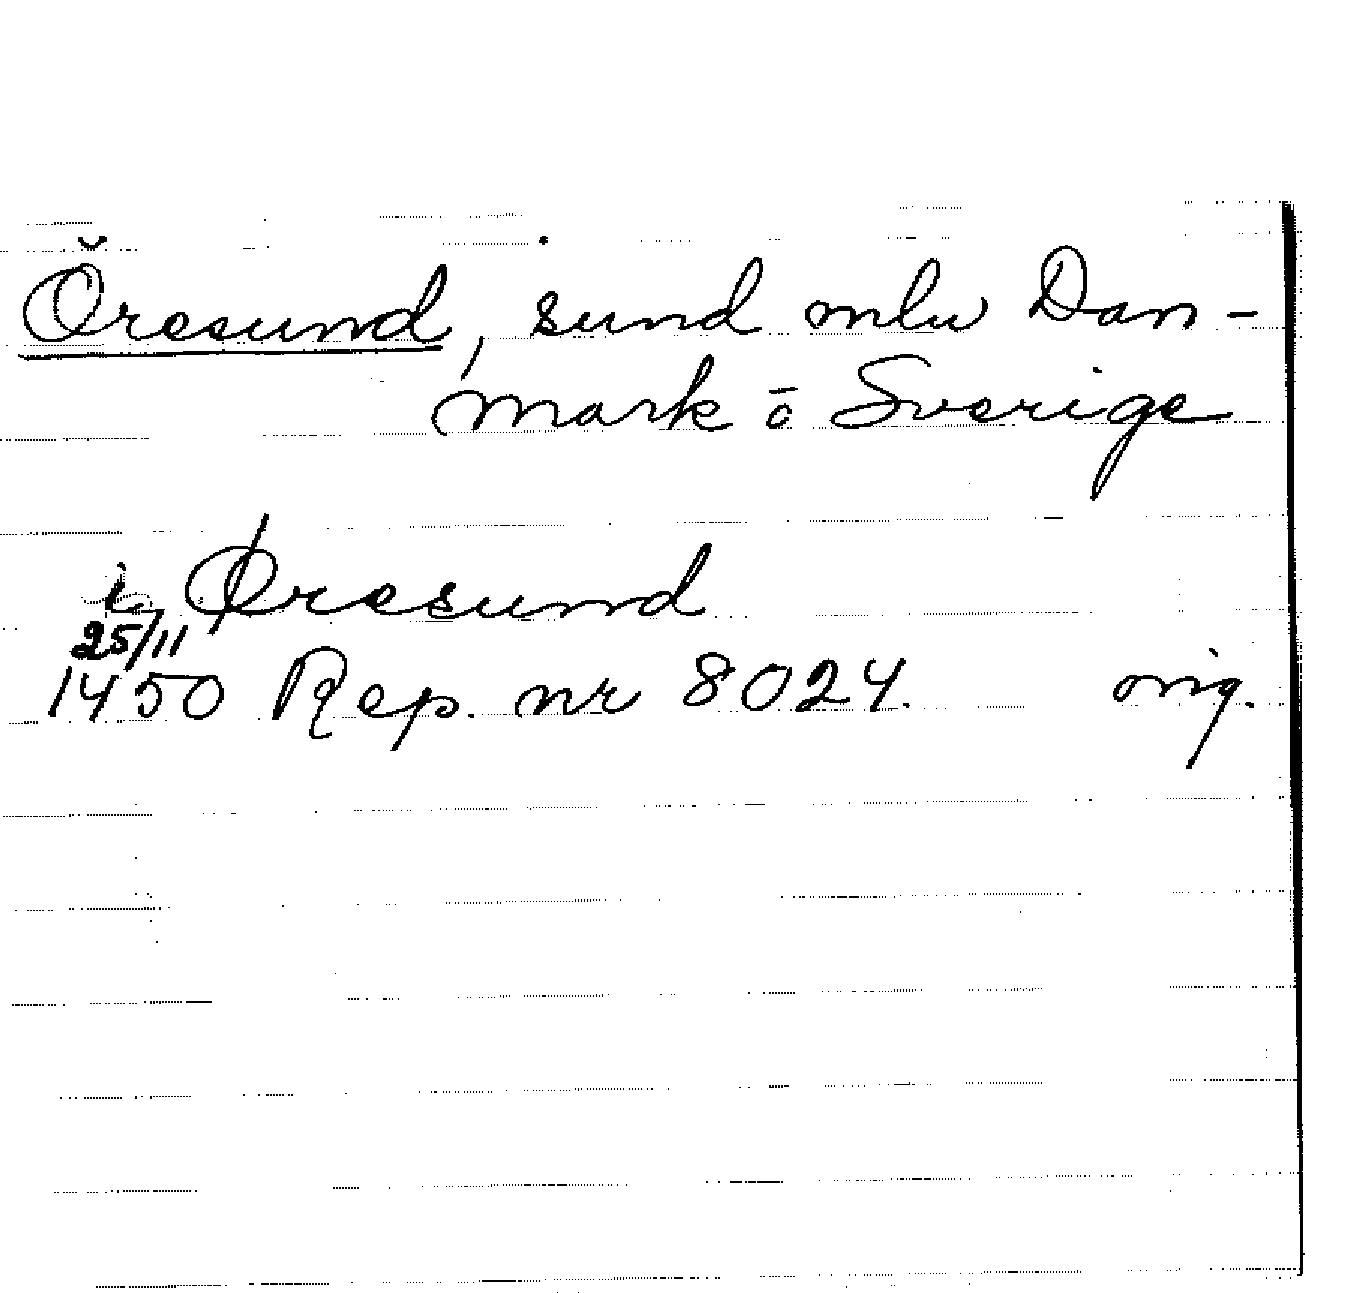 Öresund, sund mlw Dan-
mark ō Sverige
i Øresund
25/11
1450 Rep. nr 8024. orig.